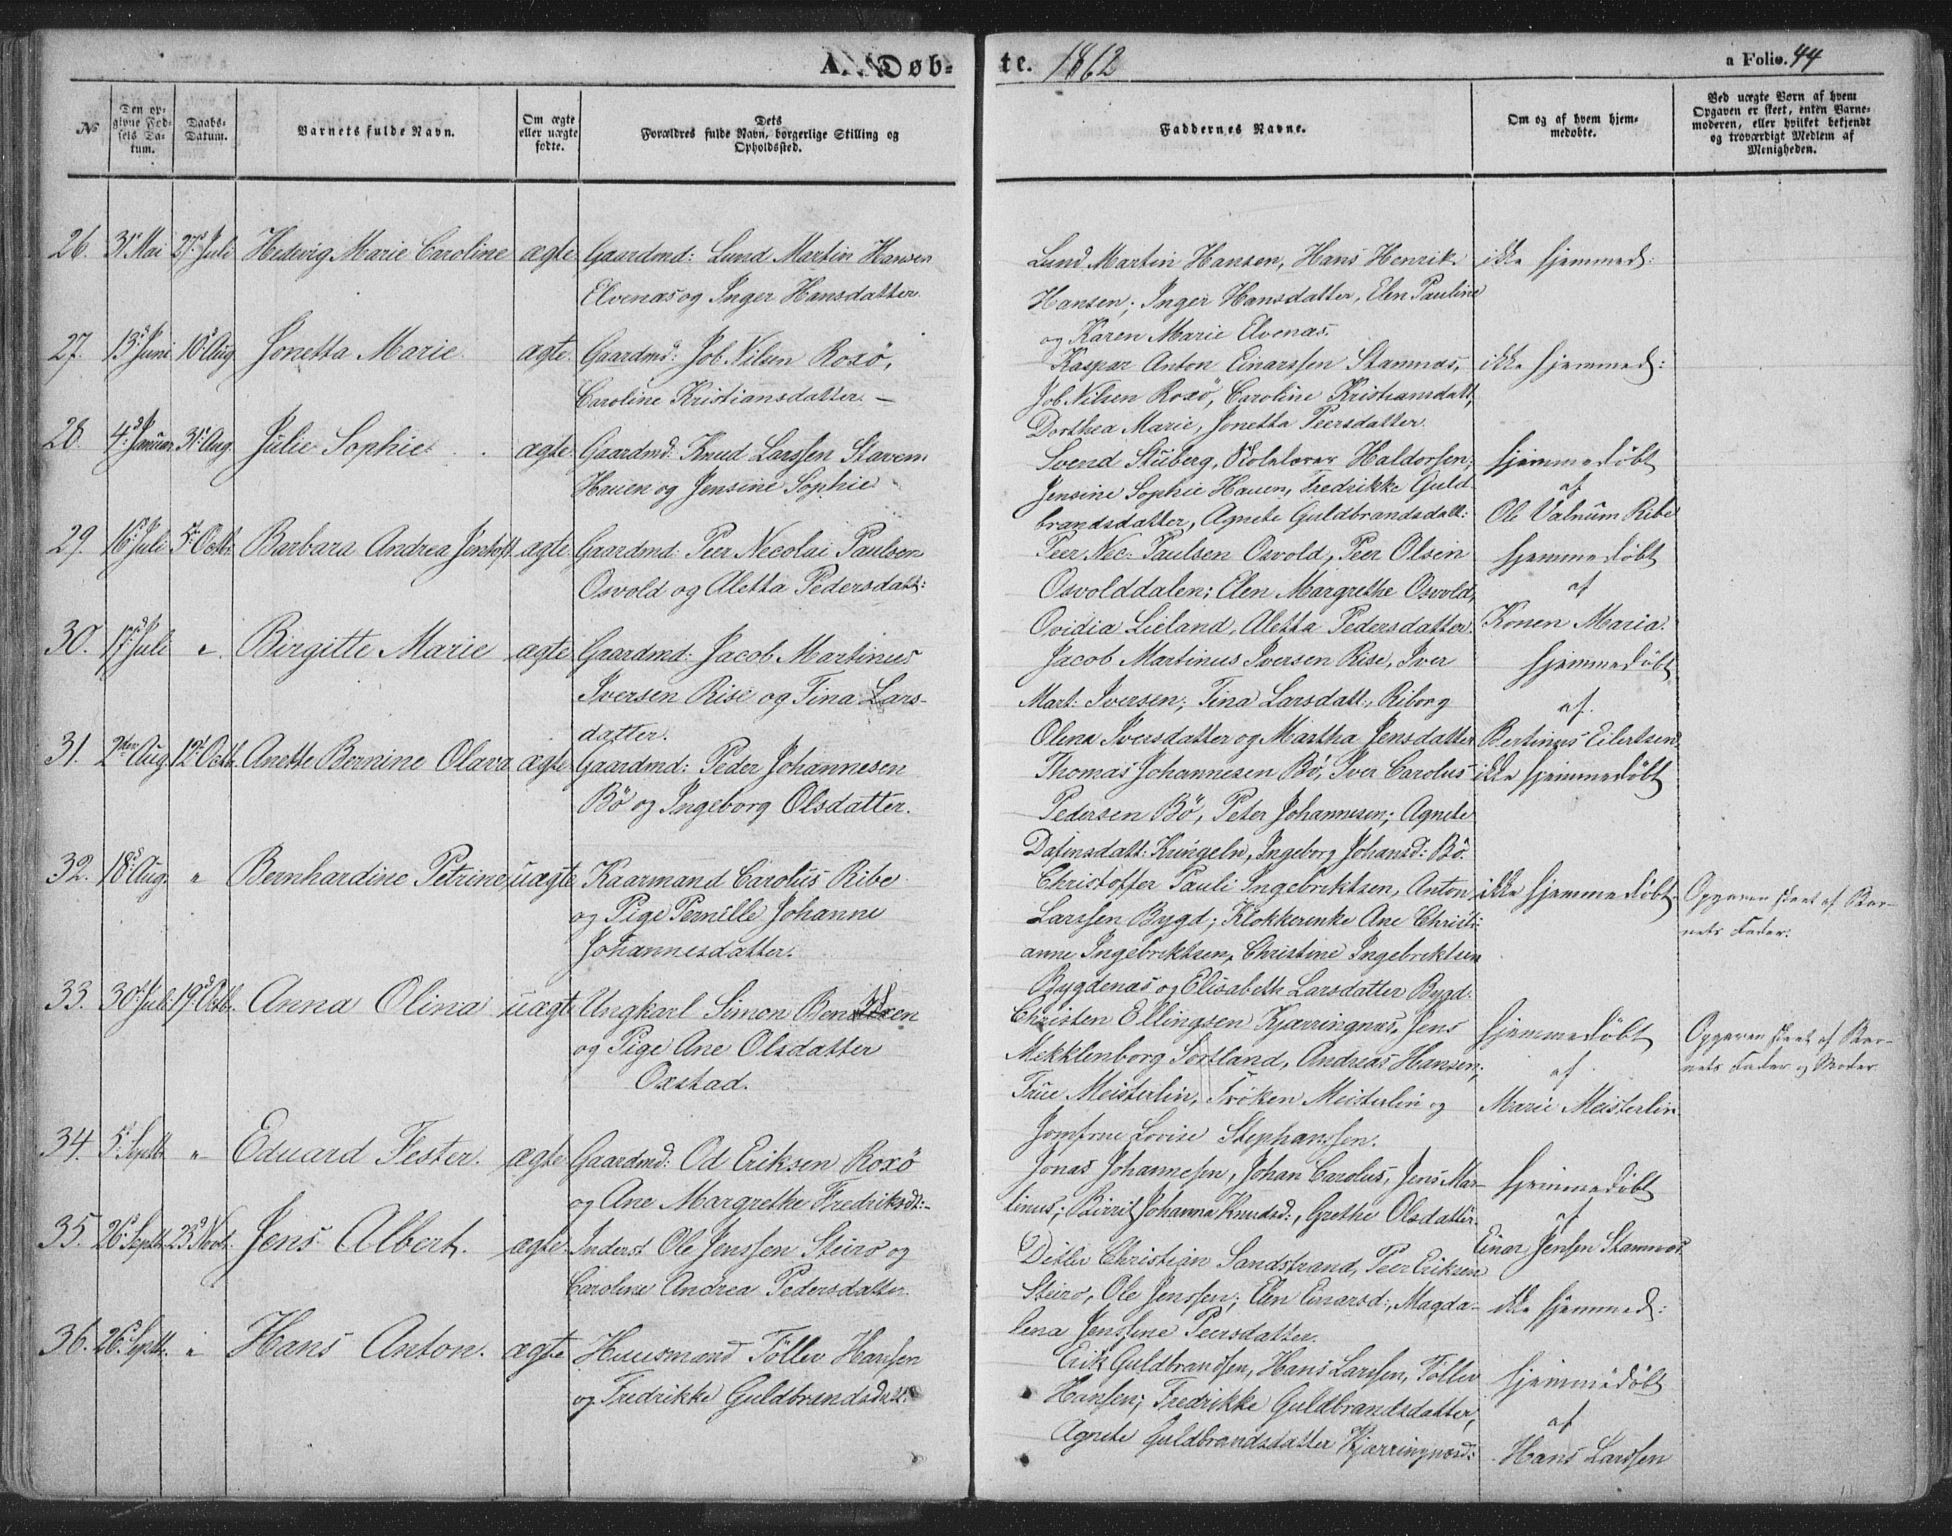 A. Døb-
te. 1862
a Folio. 44
No
Den opgivne Fødsels Datum.
Daabs-Datum.
Barnets fulde Navn.
Om ægte eller uægte fødte.
Dets Forældres fulde Navn, borgerlige Stilling og Opholdssted.
Faddernes Navne.
Om og af hvem hjemmedøbte.
Ved uægte Børn af hvem Opgaven er skeet, enten Barnemoderen, eller hvilket bekjendt og troværdigt Medlem af Menigheden.
26. 31te Mai 27d. Juli Hedevig Marie Caroline ægte Gaardmd: Lund Martin Hansen
Elvenæs og Inger Hansdatter
Lund Martin Hansen, Hans Henrik
Hansen; Inger Hansdatter, Elen Pauline
og Karen Marie Elvenæs.
ikke hjemmed:
27. 13d. Juni 10d. Aug Jonetta Marie. ægte Gaardmd: Job Nilsen Roxø,
Caroline Kristiansdatter. –
Kaspar Anton Einarssen Stamnæs,
Job Nilsen Roxø, Caroline Kristiansdatt,
Dorthea Marie, Jonetta Peersdatter.
ikke hjemmed:
28. 4d. Januar 31te Aug. Julie Sophie. ægte Gaardmd: Knud Larssen Stavem
Hauen og Jensine Sophie
Svend Stuberg, Skolelærer Haldorsen;
Jensine Sophie Hauen, Fredrikke Guld-
brandsdatter, Agnete Guldbrandsdatt:
hjemmedøbt
af
Ole Valnum Ribe
29. 16d. Juli 5te Octb: Barbara Andrea Jentoft ægte Gaardmd: Peer Necolai Paulsen
Osvold og Aletta Pedersdatt:
Peer Nec: Paulsen Osvold, Peer Olsen
Osvolddalen; Elen Margrethe Osvold,
Ovidia Lieland, Aletta Pedersdatter.
hjemmedøbt
af
Konen Maria.
30. 17d. Juli " Birgitte Marie ægte Gaardmd: Jacob Martinus
Iversen Rise og Tina Lars-
datter.
Jacob Martinus Iversen Rise, Iver
Mart: Iversen; Tina Larsdatt:, Riborg
Olena Iversdatter og Martha Jensdatter
hjemmedøbt
af
Bertinus Eilertsen
31. 2den Aug 12d. Octb. Anette Bernine Olava ægte Gaardmd: Peder Johannesen
Bø og Ingeborg Olsdatter.
Thomas Johannesen Bø, Iver Carolus
Pedersen Bø, Peter Johannesen; Agnete
Dafinsdatt: Kringeln, Ingeborg Johansd: Bø.
ikke hjemmedøbt
32. 18d. Aug. " Bernhardine Petrine, uægte Kaarmand Carolus Ribe
og Pige Pernille Johanne
Johannesdatter.
Christoffer Pauli Ingebriktsen, Anton
Larssen Bygd; Klokkerenke Ane Christi-
anne Ingebriktsen, Christine Ingebriktsen
Bygdenæs og Elisabeth Larsdatter Bygd.
ikke hjemmedøbt.
Opgaven skeet af Bar-
nets Fader.
33. 30d. Juli 19d. Octb. Anna Olina uægt Ungkarl Simon
og Pige Ane Olsdatter
Oxstad.
Christen Ellingsen Kjærringnæs, Jens
Mekklenborg Sortland, Andreas Hansen;
Frue Meisterlin, Frøken Meisterlin og
Jomfrue Lovise Stephanssen.
hjemmedøbt
af
Marie Meisterlin
Opgaven skeet af Bar-
nets Fader og Moder.
34. 5te Septb: " Eduard Fester. ægte Gaardmd: Od Eriksen Roxø
og Ane Margrethe Fredriksdt:–
Jonas Johannessen, Johan Carolus, Jens Mar-
tinus; Birrit Johanna Knudsd:, Grethe Olsdatter.
hjemmedøbt
af
Einar Jenssen Stamnæs
35. 26d. Septb. 23d. Novb. Jens Albert. ægte Inderst Ole Jenssen Steiro og
Caroline Andrea Pedersdatter.
Ditlev Christian Sandstrand, Peer Eriksen
Steiro, Ole Jenssen; Elen Einarsd:, Magda-
lena Jenssine Peersdatter.
ikke hjemmed:
36. 26d. Septb. " Hans Anton. ægte Huusmand Tøllev Hanssen
og Fredrikke Guldbrandsdatt.
Erik Guldbrandsen, Hans Larssen, Tøllev
Hanssen; Fredrikke Guldbrandsdatter,
Agnete Guldbrandsdatter Kjærringnæsd:
hjemmedøbt
af
Hans Larssen